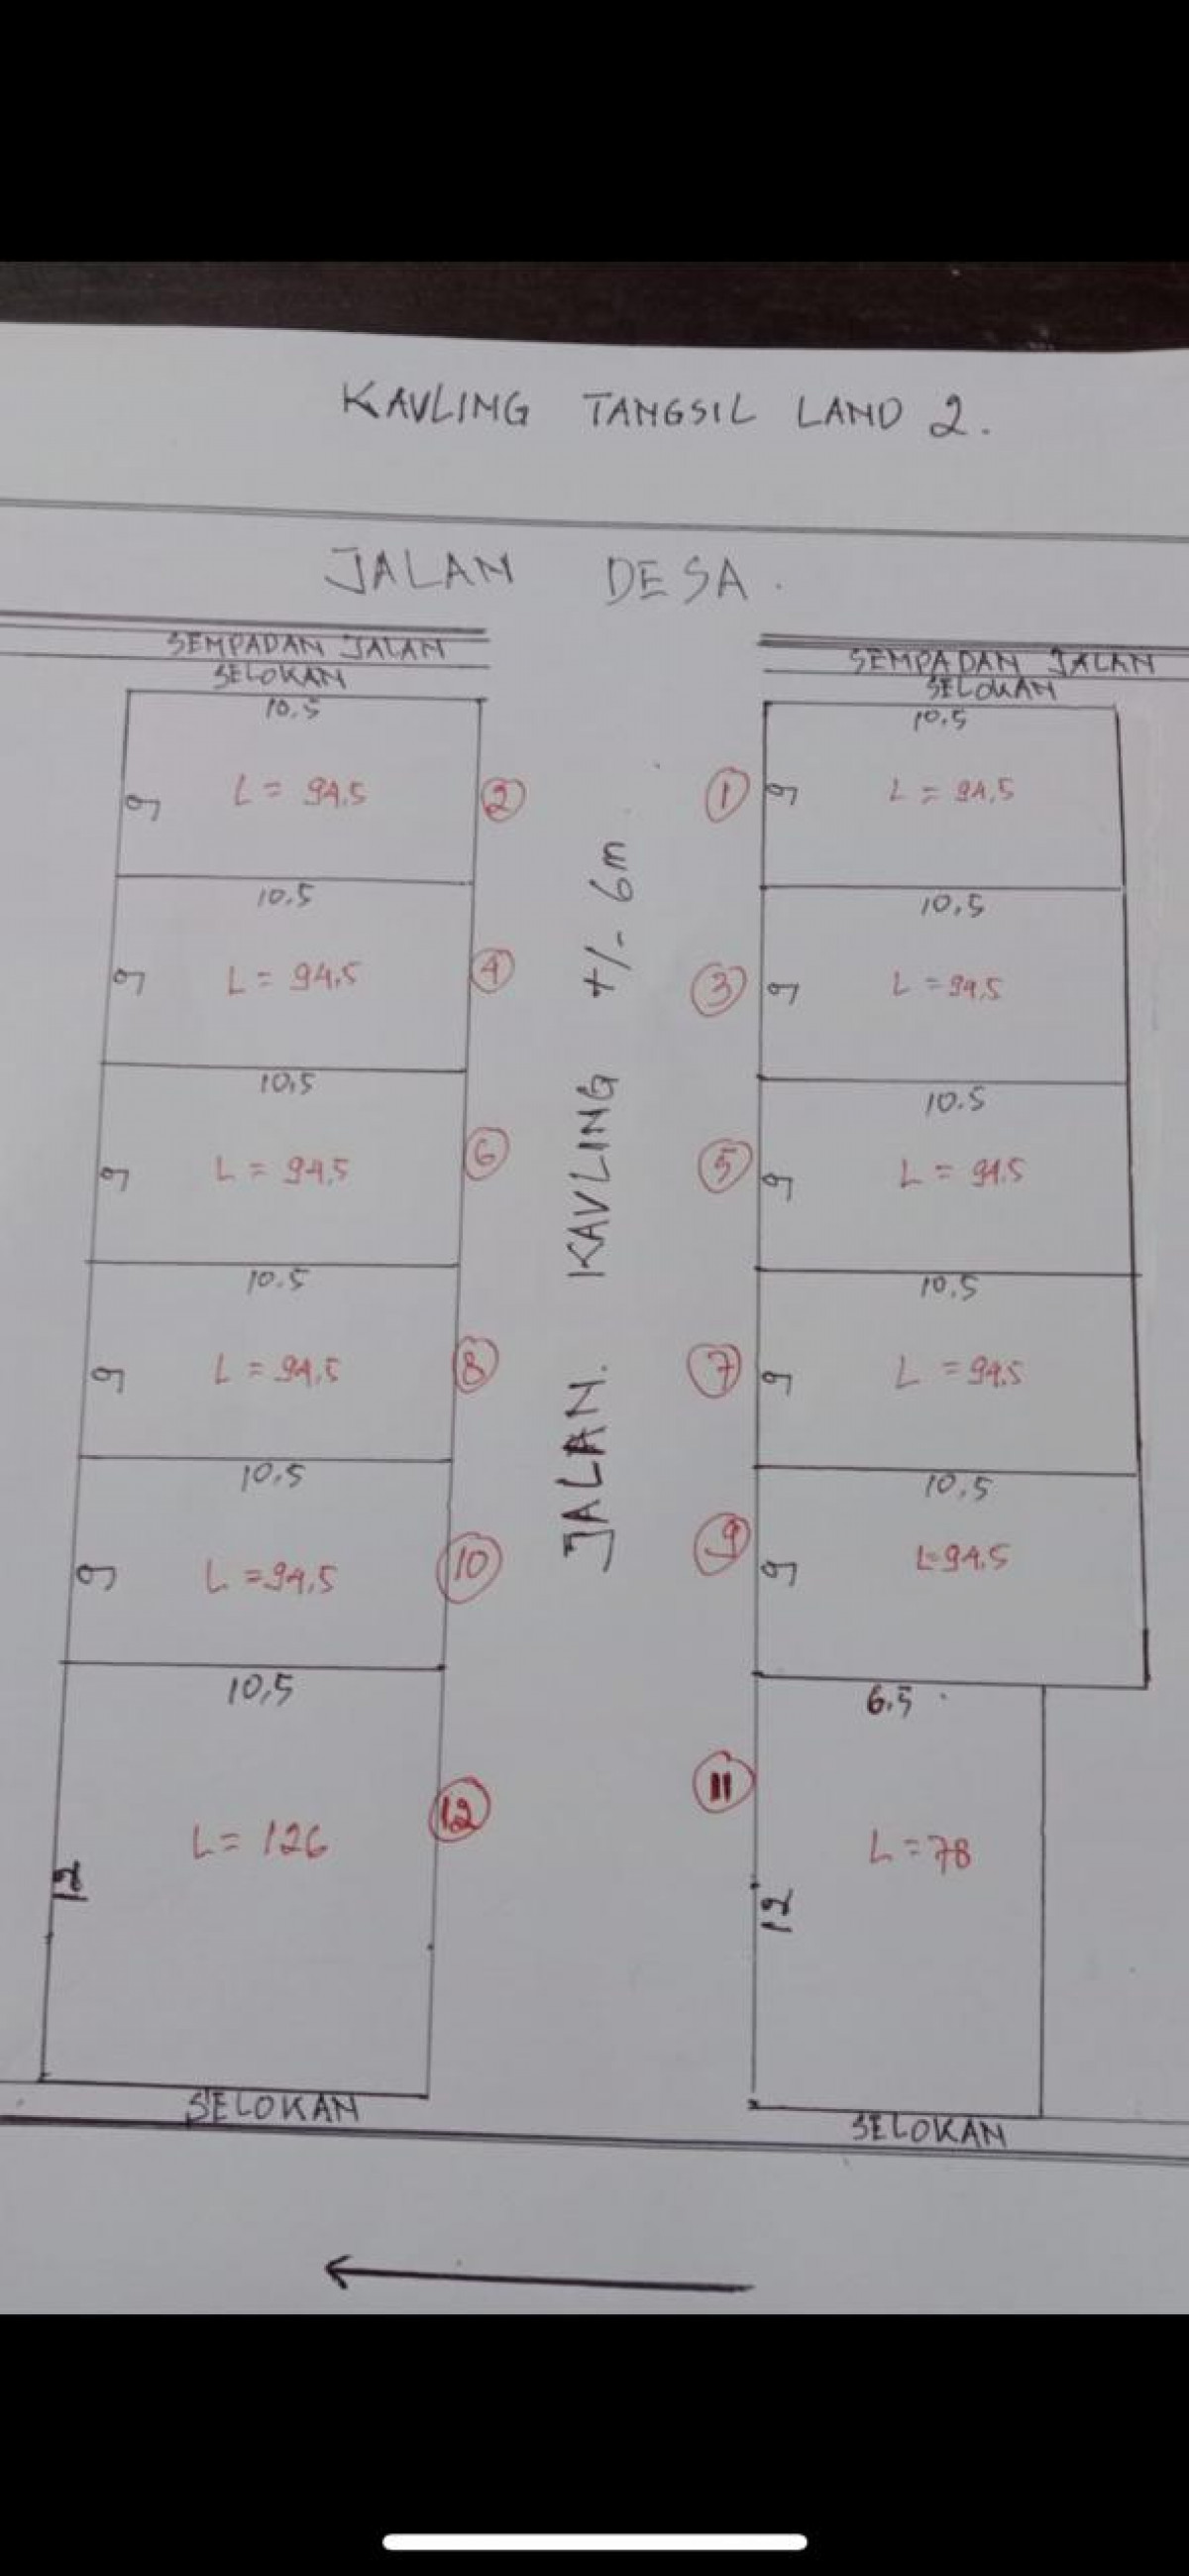 KAVLING TANGSIL LAND 2.
JALAN DESA.
SEMPADAN JALAN
SELOKAN
10.5
9
L = 94,5
2
10.5
9
L = 94,5
4
10.5
9
L = 94,5
6
10.5
9
L = 94,5
8
10.5
9
L = 94,5
10
10,5
12
L = 126
12
SELOKAN
JALAN. KAVLING +/- 6m
SEMPADAN JALAN
SELOKAN
10.5
1
9
L = 94,5
10.5
3
9
L = 94,5
10.5
5
9
L = 94.5
10.5
7
9
L = 94.5
10.5
9
9
L=94.5
6.5
11
12
L = 78
SELOKAN